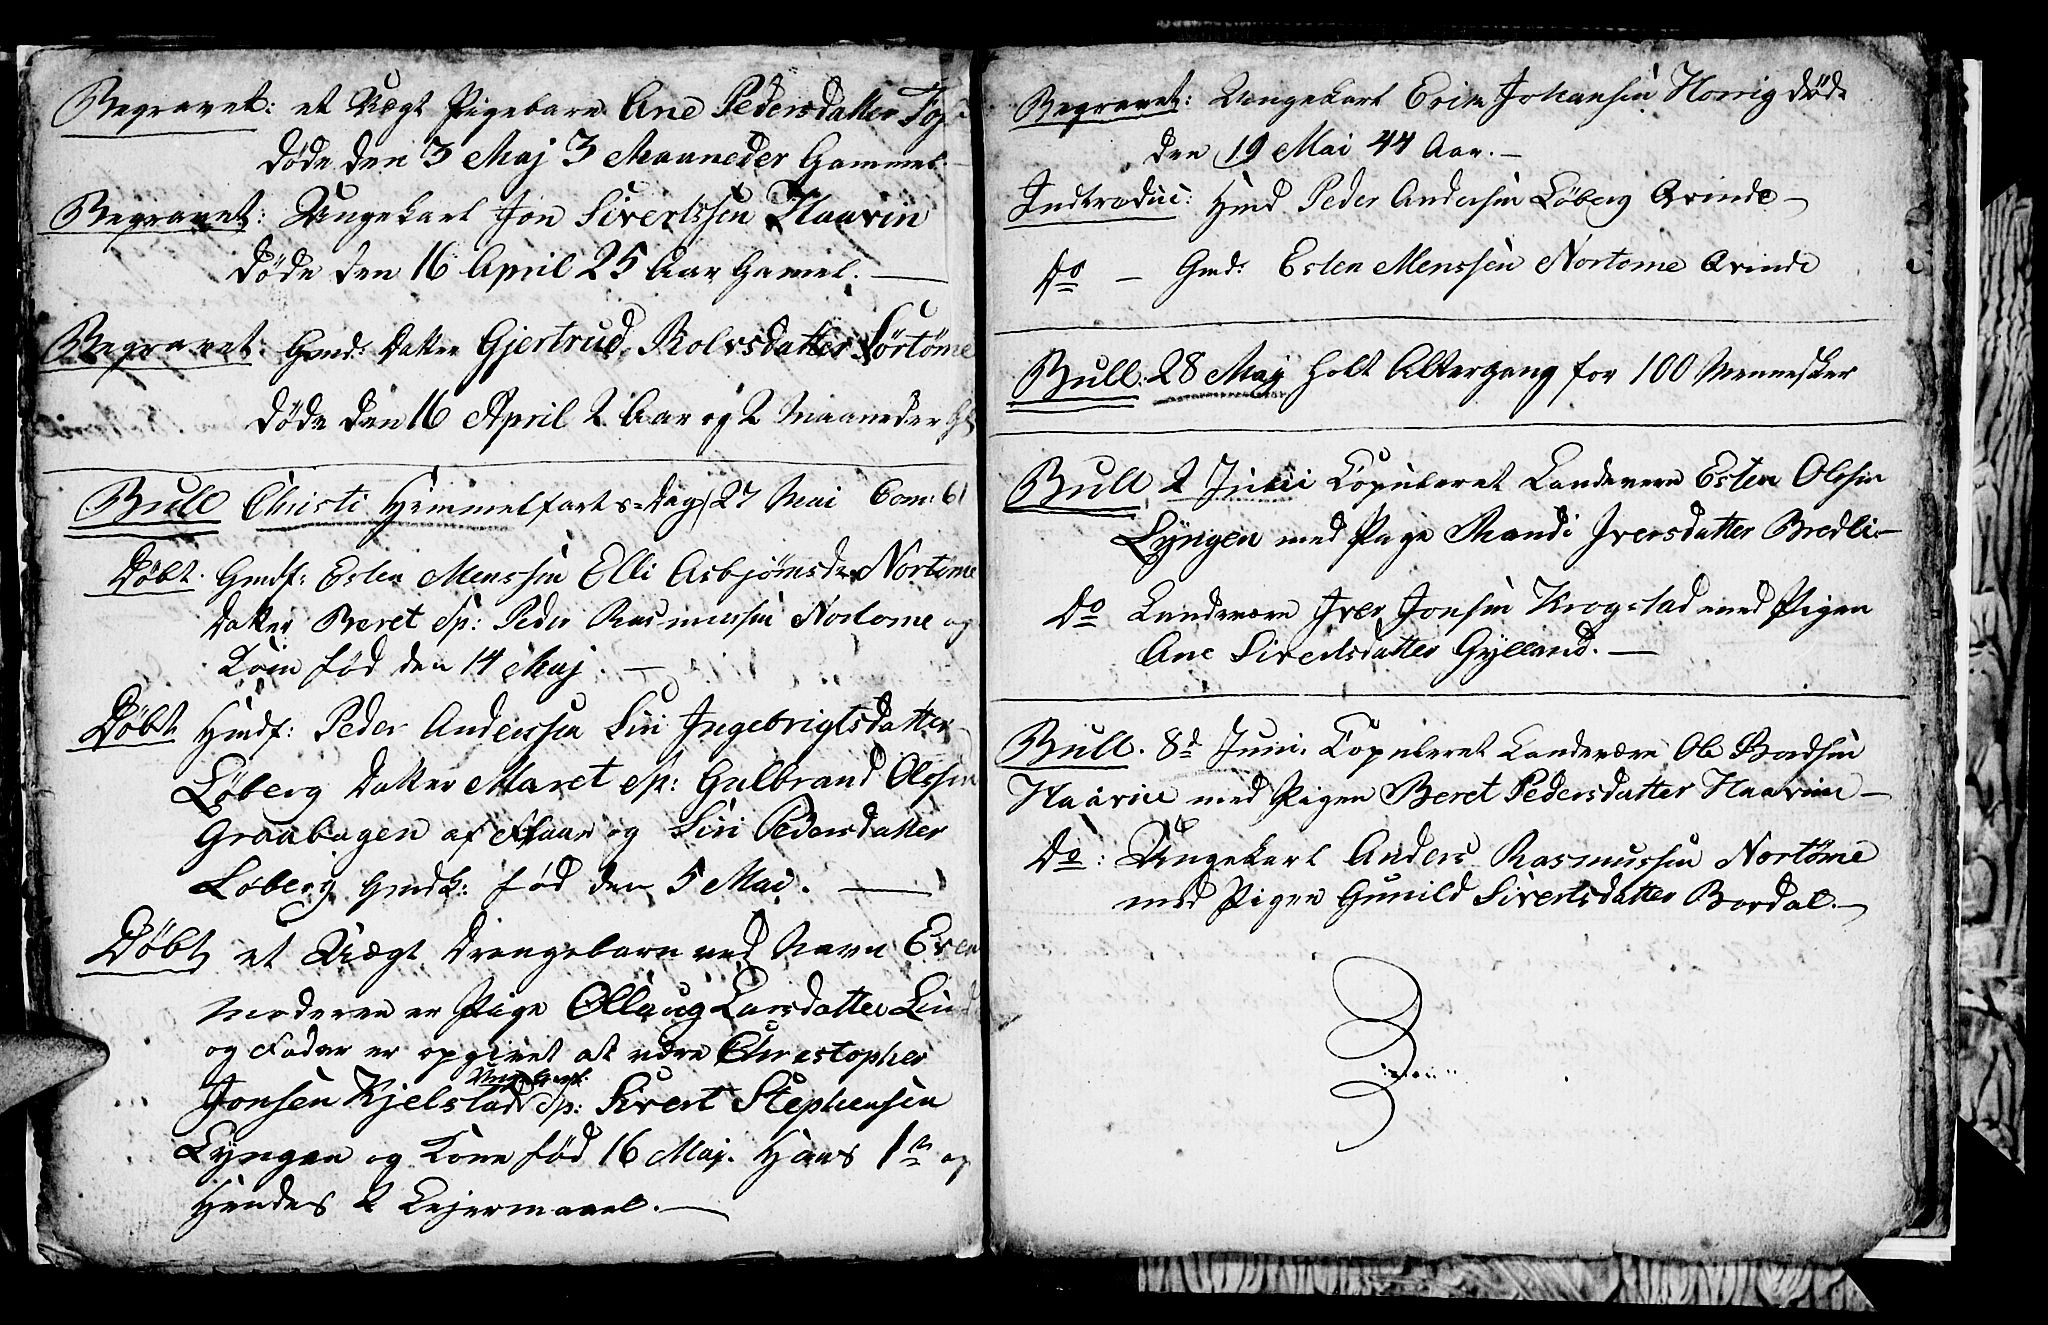 Begravet: et Uægt Pigebarn Ane Pedersdatter
døde den 3 Maj 3 Maaneder Gammel
Begravet: Ungekarl Jon Sivertssen Haavin
døde den 16 April 25 Aar Gamel. —
Begravet: Gmd: Datter Gjertrud Rolvsdatter Sørtøme
døde den 16 April 2 Aar og 2 Maaneder
Bull Christi Himmelfarts=Dag 27 Mai Com: 61
Døbt. Gmdf: Esten Menssen Elli Asbjørnsd Nortøme
Datter Beret Sp: Peder Rasmussen Nortome og
Kone fød den 14 Maj. —
Døbt Hmdf: Peder Anderssen Siri Ingebrigtsdatter
Løberg Datter Maret Sp: Gulbrand Olssen
Graabagen af Flaae og Siri Pedersdatter
Løberg Gmdk: fød den 5 Mai. —
Døbt et Uægt Drengebarn ved Navn Even
Moderen er Pige Ollaug Larsdatter
og Fader er opgivet at være Christopher
Jonsen Kjelstad Sp: Sivert Stephensen
Lyngen og Kone fød 16 Maj. Hans 1te og
Hendes 2 Lejermaael. —
Begravet: Ungekarl Erik Johansen Horrig døde
den 19 Mai 44 Aar. —
Indtroduc: Hmd Peder Andersen Løberg Qvinde —
Do — Gmd: Esten Menssen Nortome Qvinde
Bull: 28 Maj holt Altergang for 100 Mennesker
Bull 2 Junii Copuleret Landevern Esten Olssen
Lyngen med Pige Randi Iversdatter Bredli —
Do Landevern Iver Jonsen Krogstad med Pigen
Ane Sivertsdatter Gylland. —
Bull. 8de Juni Copuleret Landevern Ole Bordsen
Haavin med Pigen Beret Pedersdatter Haavin —
Do: Ungekarl Anders Rasmussen Nortøme
med Pigen Gunild Sivertsdatter Bordal. —